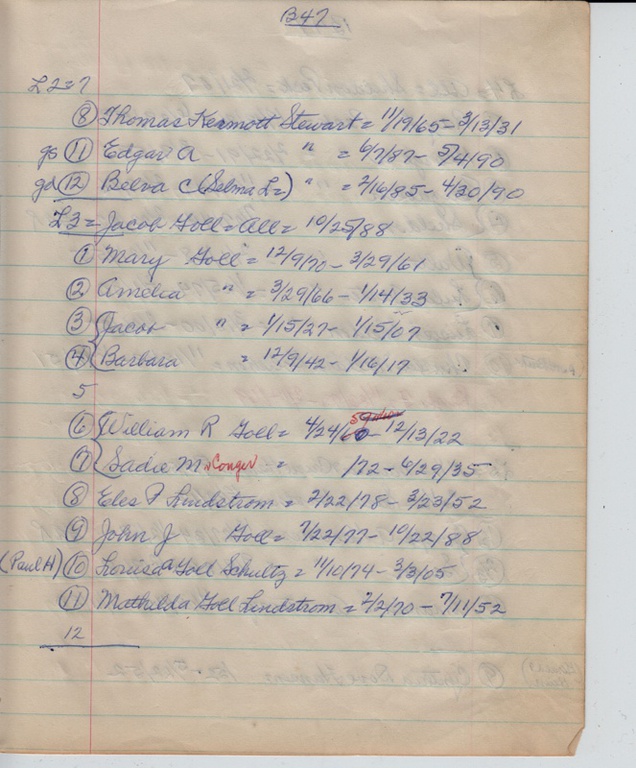 B47
L2=7
⑧ Thomas Kermott Stewart = 11/19/65 - 3/13/31
gs ⑪ Edgar A " = 6/7/87 - 5/4/90
gd ⑫ Belva C (Selma L=) " = 2/16/85 - 4/30/90
L3 = Jacob Goll = All = 10/25/88
① Mary Goll = 12/9/70 - 3/29/61
② Amelia " = 3/29/66 - 1/14/33
③ Jacob " = 1/15/27 - 1/15/07
④ Barbara = 12/9/42 - 1/16/17
5
⑥ William R Goll = 4/24/60 - 12/13/22
⑦ Sadie M Conger = /72 - 6/29/35
⑧ Eles P Lindstrom = 2/22/78 - 3/23/52
⑨ John J Goll = 7/22/77 - 10/22/88
(Paul H) ⑩ Louisa Goll Schultz = 11/10/74 - 3/3/05
⑪ Mathilda Goll Lindstrom = 2/2/70 - 7/11/52
12